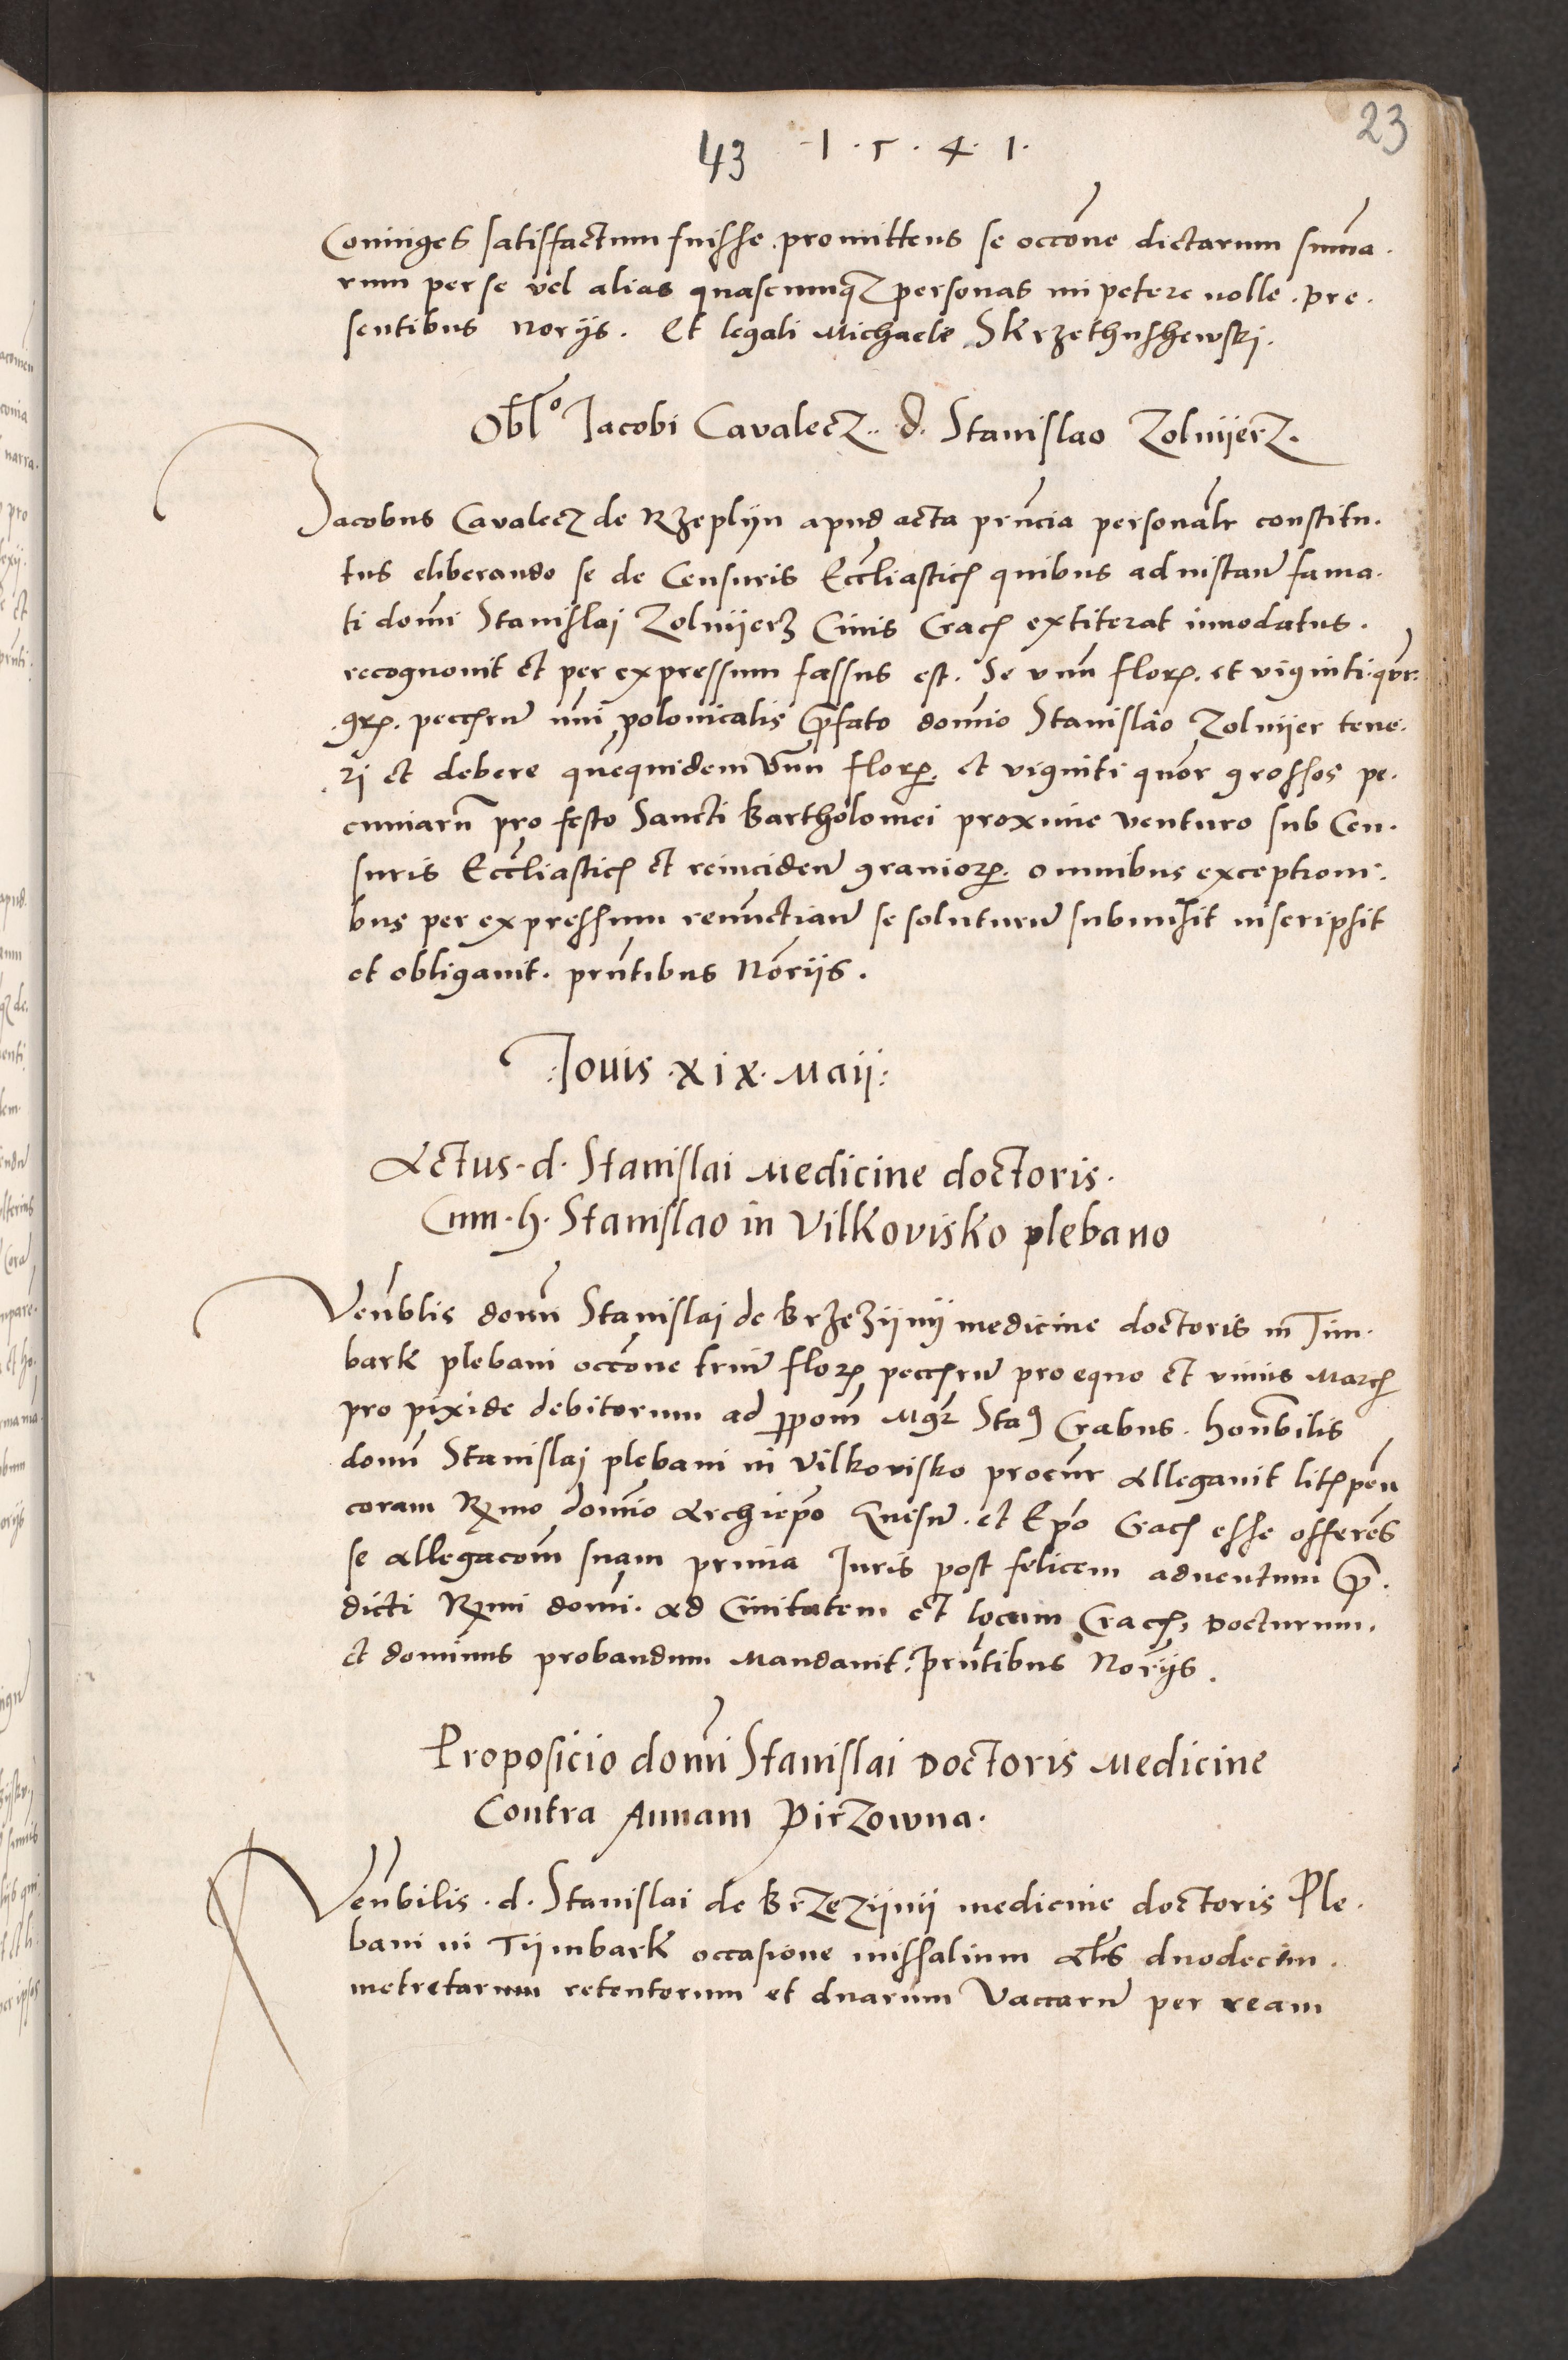 23
43 1 . 5 . 4 . 1 .
Coniuges satisfactum fuisse . promittens se occōne dictarum summa .
rum per se vel alias quascumqꝫ personas impetere nolle . pre .
sentibus norijs . Et legali Michaele Skrzethushewskj .
Oblo Jacobi Cavalecz .. d . Stanislao Zolnijerz .
Jacobus Cavalecz de Rzeplijn apud acta prn̄cia personalr̄ constitu .
tus eliberando se de Censuris Eccl̄iasticꝭ quibus ad instan̄ fama .
ti domi Stanislaj Zolnijerz Ciuis Cracꝭ extiterat innodatus .
recognouit et per expressum fassus est . Se vnm̄ florꝭ . et viginti quōr .
grꝭ . pecc̄rum nui polonicalis p̄fato domīo Stanislao Zolnijer tene .
rj et debere quequidem Vnum florꝭ . et viginti quōr grossos pe .
cuniarum̄ pro festo Sancti Bartholomei proxime venturo sub Cen .
suris Eccl̄iasticꝭ et reinciden̄ grauiorꝭ . omnibus exceptioni .
bus per expressum renunctian̄ se soluturum̄ submisit inscripsit
et obligauit . prn̄tibus Norijs .
: Jouis . xix . Maij :
Actus . d . Stanislai Medicine doctoris .
Cum . h . Stanislao in Vilkovisko plebano
Ven̄blis domi Stanislaj de Brzezijnij medicine doctoris in Tim .
bark plebani occōne trium̄ florꝭ pecc̄rum pro equo et vnius Marcꝭ
pro pixide debitorum ad ꝓpom̄ Mgr̄ Staꝯ Crabus . honr̄bilis
domi Stanislaj plebani in Vilkovisko procur̄ allegauit litꝭ pen̄
coram Rꝫmo domīo Archiepo Gnesn̄ . et Epo Cracꝭ esse offerens
se allegacom̄ suam prima Juris post felicem aduentum p̄ .
dicti Rꝫmi domi . ad Ciuitatem et locum Cracꝭ , docturum .
et dominus probandum mandauit . Prn̄tibus Norijs .
Proposicio domi Stanislai Doctoris Medicine
Contra Annam Pirzowna .
Ven̄bilis . d . Stanislai de Brzezijnij medicine doctoris Ple .
bani in Tijmbark occasione missalium al̄s duodecim .
metretarum retentorum et duarum Vaccarum̄ per ream